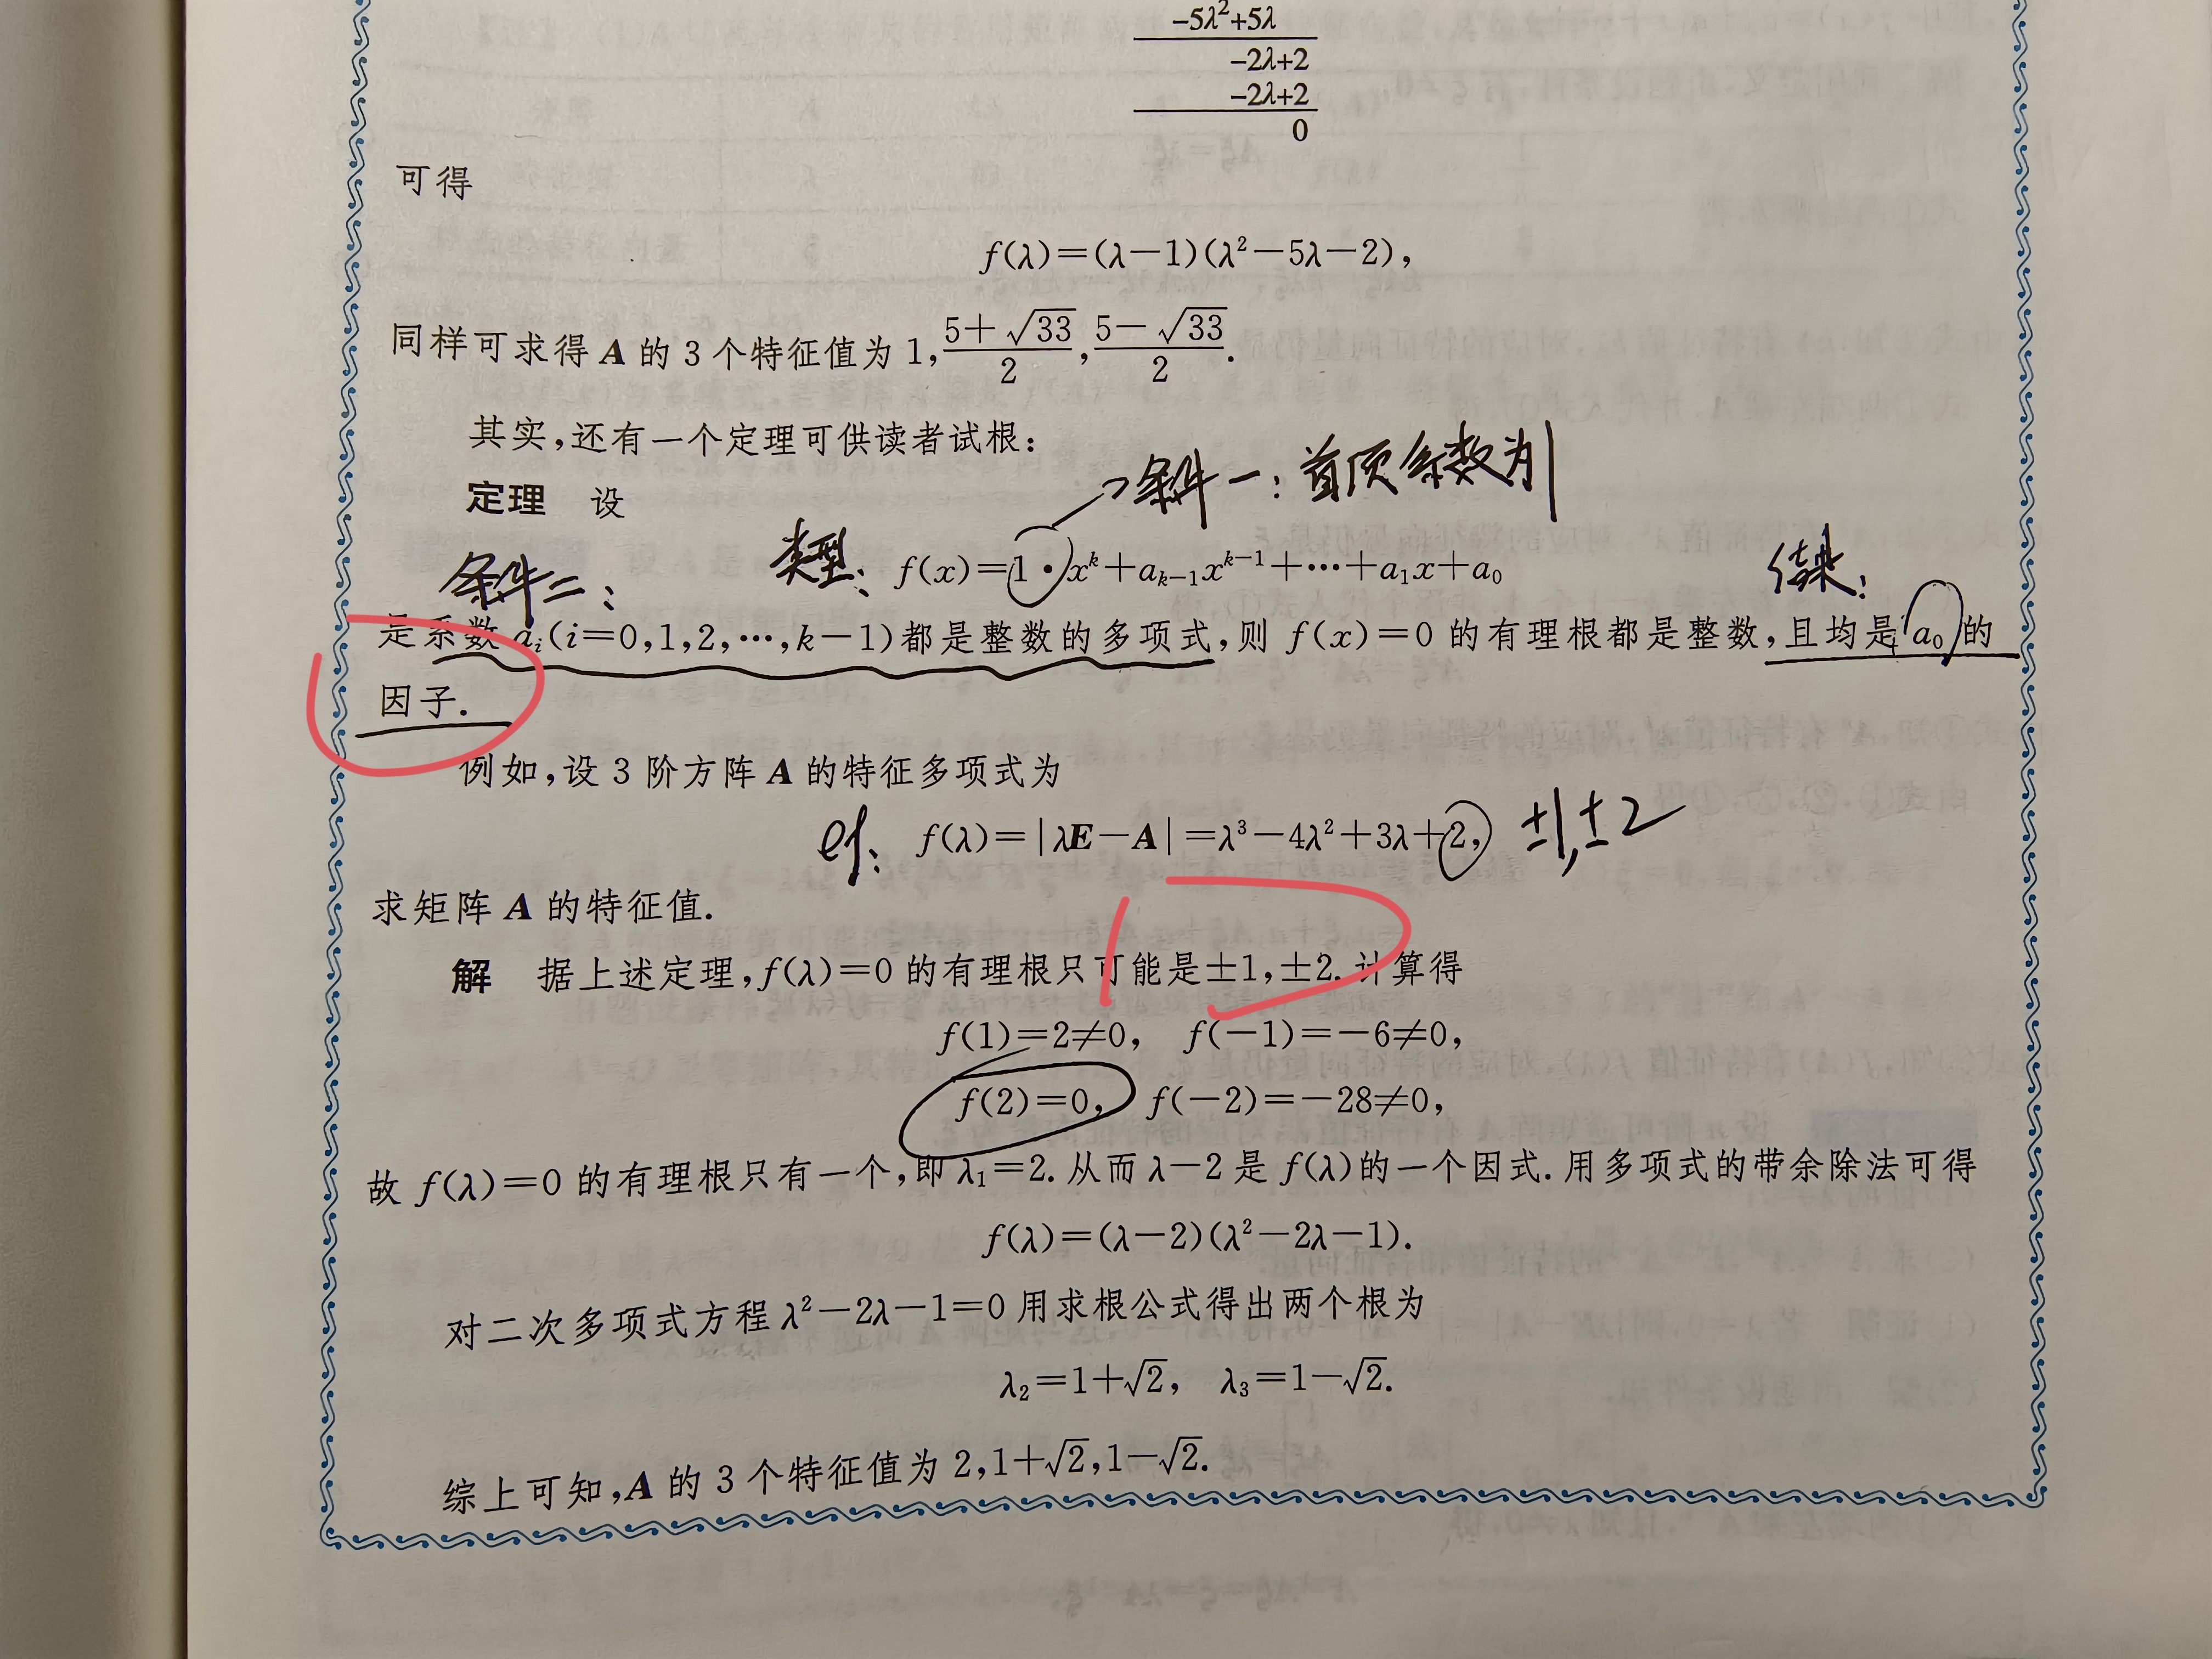 -5λ²+5λ
-2λ+2
-2λ+2
0
可得
f(λ)=(λ-1)(λ²-5λ-2),
同样可求得 A 的 3 个特征值为 1, (5+√33)/2, (5-√33)/2.
其实,还有一个定理可供读者试根:
条件一:首项系数为1
定理 设
条件二: 类型: f(x)=1·xᵏ+aₖ₋₁xᵏ⁻¹+⋯+a₁x+a₀ 结果:
是系数 aᵢ(i=0,1,2,⋯,k-1)都是整数的多项式,则 f(x)=0 的有理根都是整数,且均是 a₀ 的
因子.
例如,设 3 阶方阵 A 的特征多项式为
f(λ)=|λE-A|=λ³-4λ²+3λ+2, ±1,±2
求矩阵 A 的特征值.
解 据上述定理,f(λ)=0 的有理根只可能是±1,±2.计算得
f(1)=2≠0, f(-1)=-6≠0,
f(2)=0, f(-2)=-28≠0,
故 f(λ)=0 的有理根只有一个,即 λ₁=2.从而 λ-2 是 f(λ)的一个因式.用多项式的带余除法可得
f(λ)=(λ-2)(λ²-2λ-1).
对二次多项式方程 λ²-2λ-1=0 用求根公式得出两个根为
λ₂=1+√2, λ₃=1-√2.
综上可知,A 的 3 个特征值为 2,1+√2,1-√2.